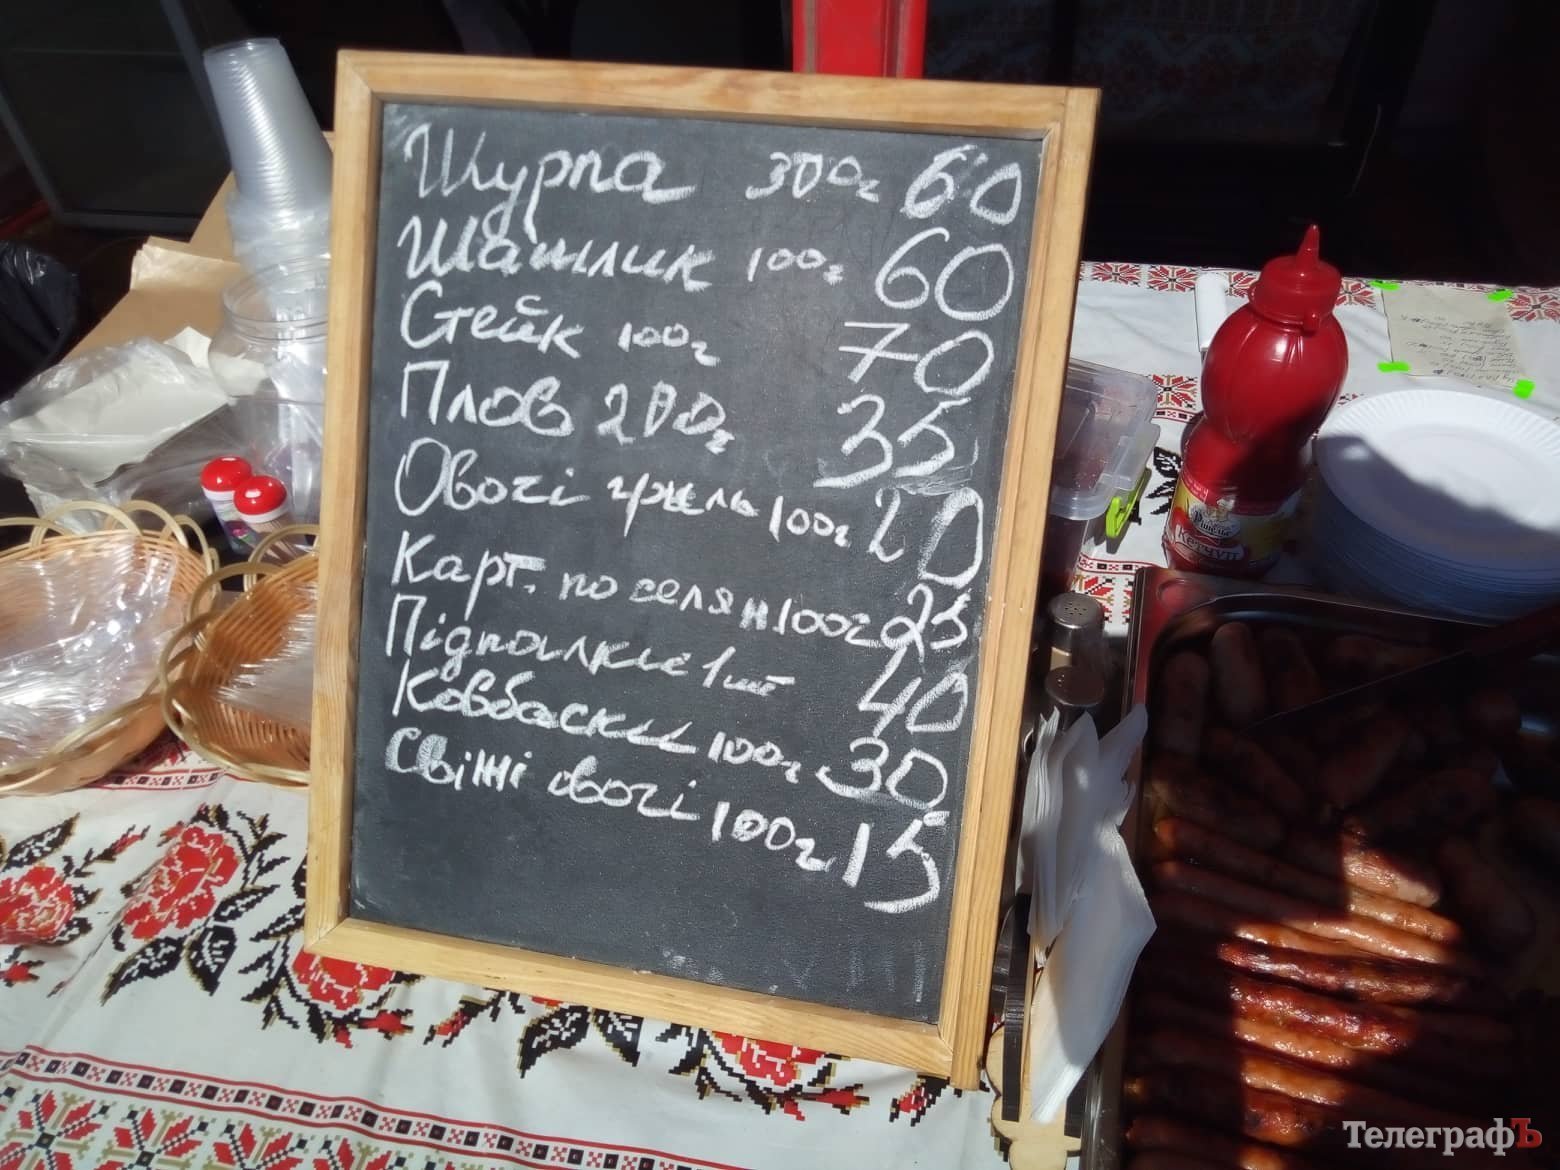 Шурпа 300г 60
Шашлик 100г 60
Стейк 100г 70
Плов 200г 35
Овочі гриль 100г 20
Карт. по селян 100г 25
1шт 40
Ковбаски 100г 30
Свіжі овочі 100г 15
Кетчуп
ТелеграфЪ